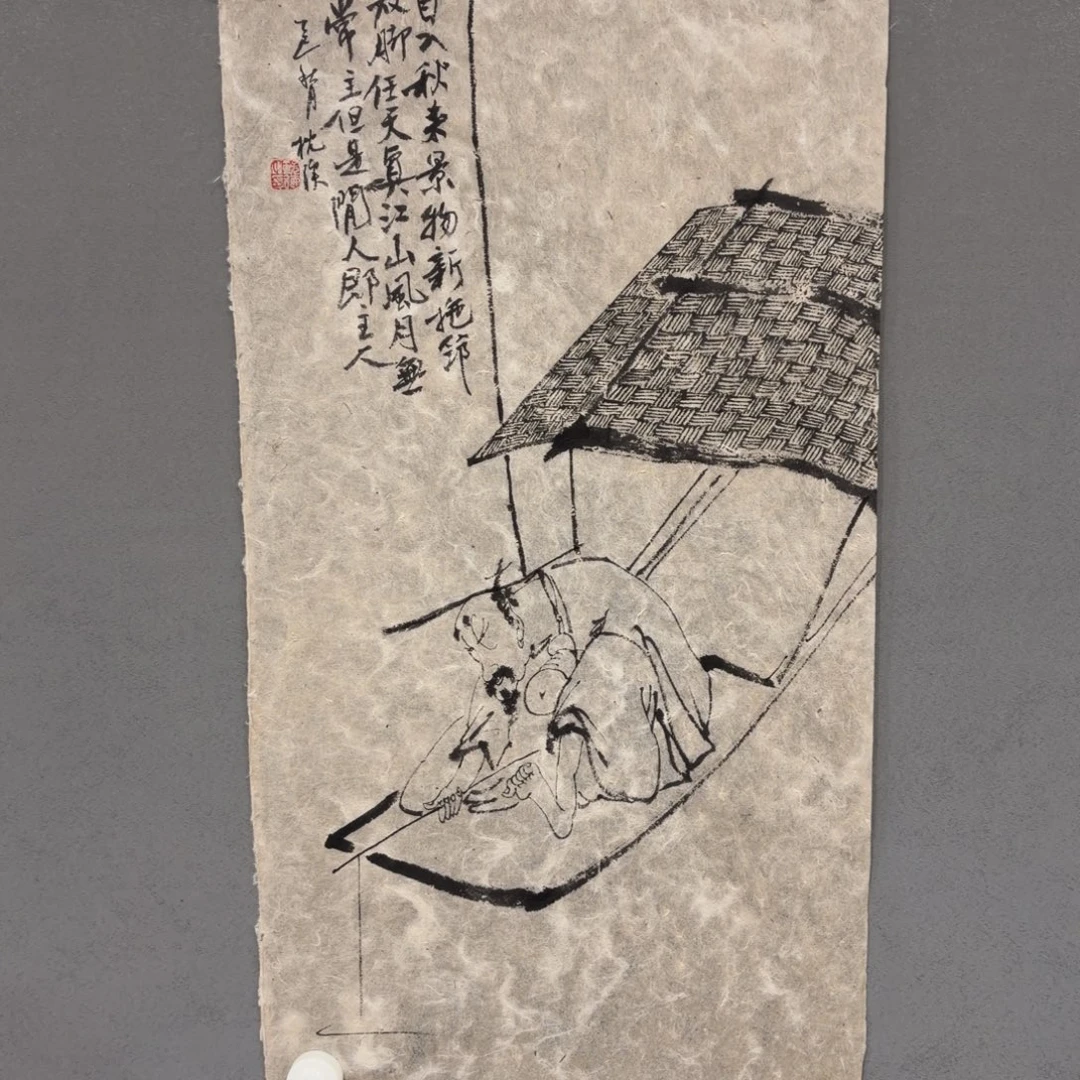 自入秋来景物新拖筇
放脚任天真江山風月無
常主但是閒人即主人